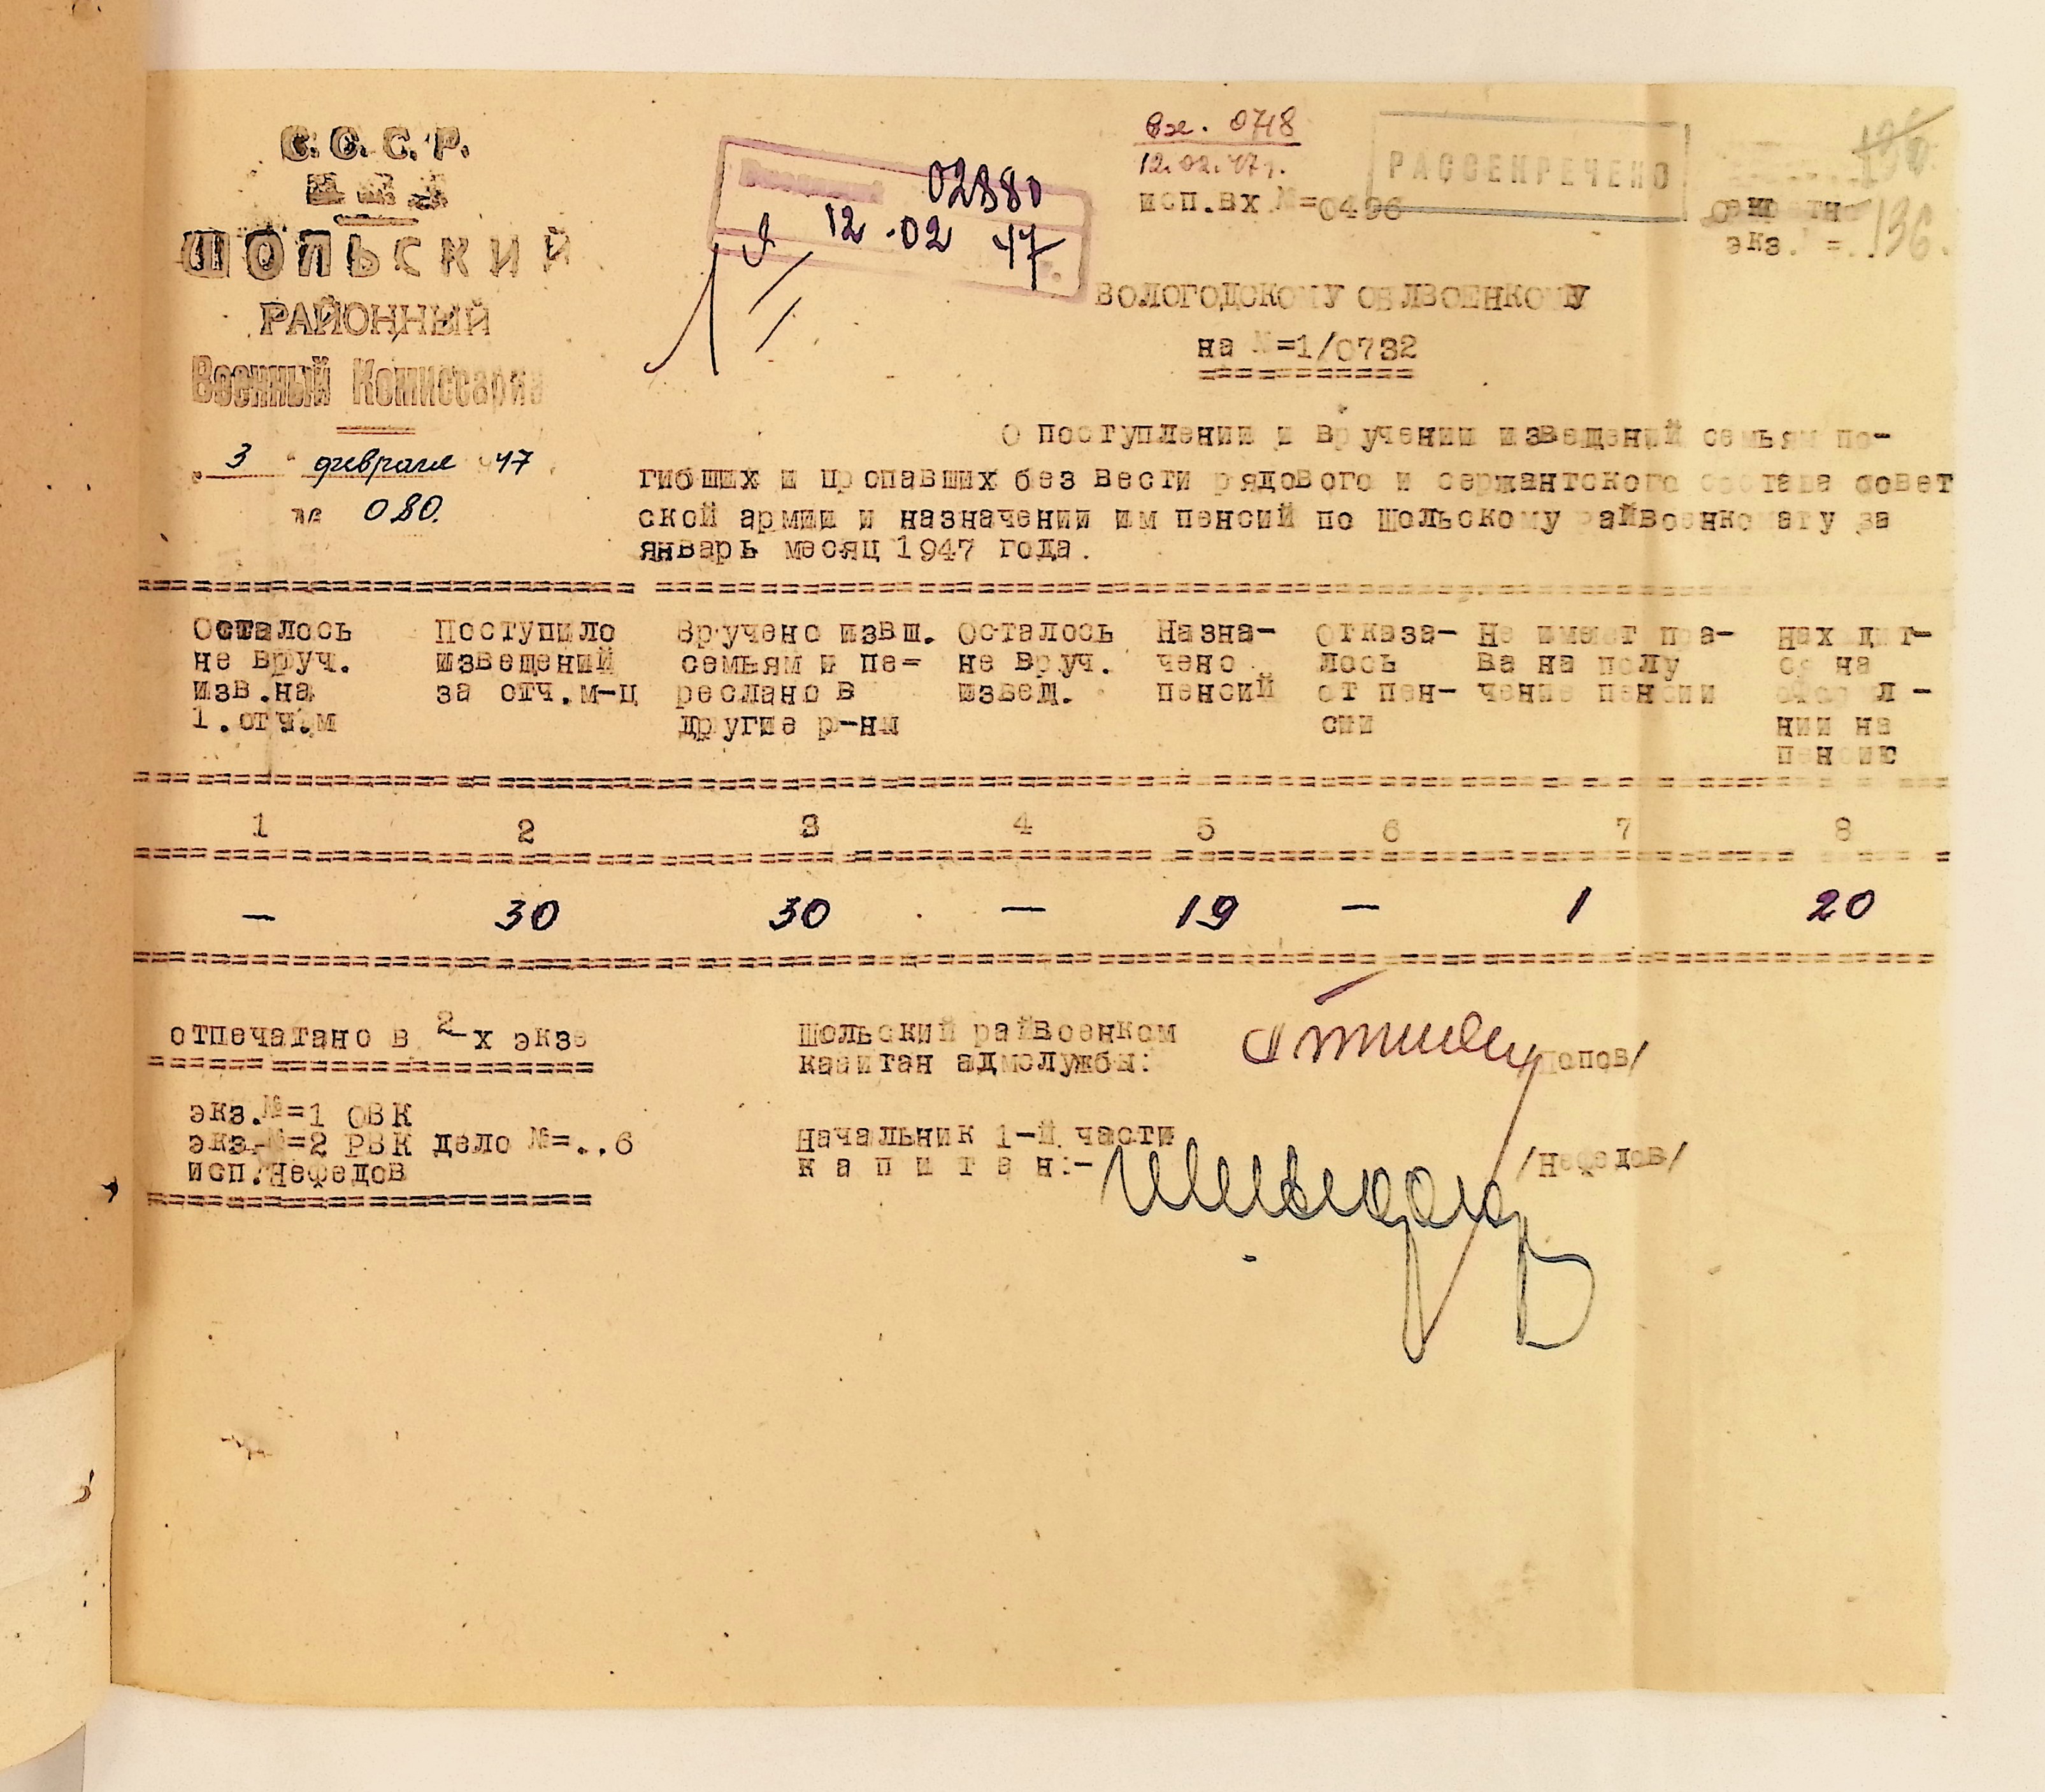 С.С.С.Р.
ШОЛЬСКИЙ
РАЙОННЫЙ
Военный Комиссариа
„ 3 “ февраля 47
№ 080.
02880
12 .02 47
Вх. 0718
12.02.47г.
исп.вх №=0496
РАССЕКРЕЧЕНО
136
Секретно
экз. =..
136.
ВОЛОГОДСКОМУ ОБЛВОЕНКОМУ
на №=1/0732
О поступлении и вручении извещений семьям по-
гибших и пропавших без вести рядового и сержантского состава совет
ской армии и назначении им пенсий по Шольскому райвоенкомату за
январь месяц 1947 года.
Осталось не вруч. изв.на 1.отч.м
Поступило извещений за отч.м-ц
Вручено извш. семьям и пе= реслано в другие р-ны
Осталось не вруч. извещ.
Назна- чено пенсий
Отказа- лось от пен- сии
Не имеют пра- ва на полу чение пенсии
Находит- ся на оформл - нии на пенсию
1 2 3 4 5 6 7 8
— 30 30 — 19 — 1 20
отпечатано в 2-х экзе
экз.№=1 ОВК
экз.№=2 РВК дело №=..6
исп.Нефедов
Шольский райвоенком
капитан адмслужбы: /Попов/
Начальник 1-й части
к а п и т а н:- /Нефедов/